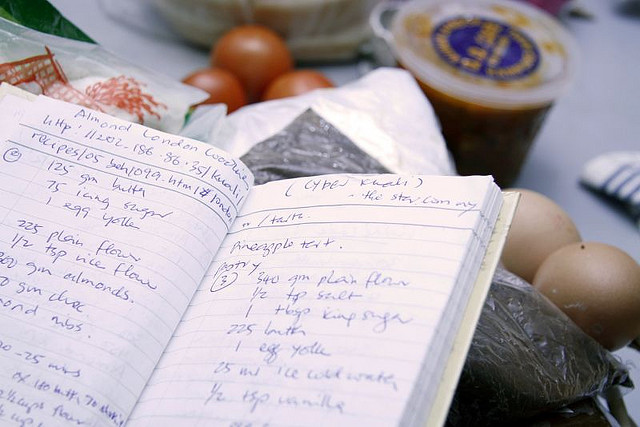 Almond London Cookie
http://202.186.86.35/kuali/
recipes/05 beh/099.html #london
125 gm butter
75 icing sugar
1 egg yolk
225 plain flour
1/2 tsp rice flour
300 gm almonds.
gm choc
almond nibs.
20 - 25 mins
(Cyber Kuali)
the star.com.my
/tarts.
Pineapple tart.
pastry
③ 340 gm plain flour
1/2 tsp salt
1 tbsp icing sugar
225 butter
1 egg yolk
25 ml ice cold water
1/2 tsp vanilla